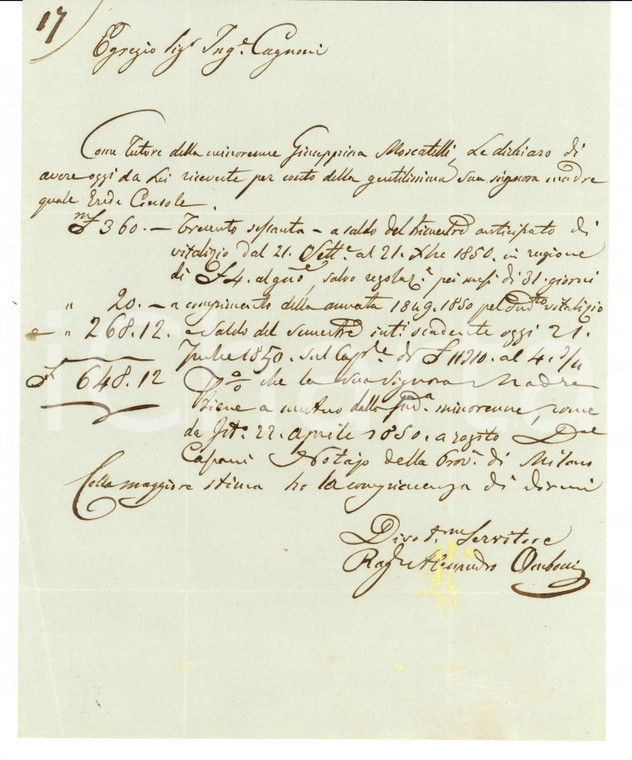 17
Egregio Sig.r Ing.e Cagnoni
Come Tutore della minorenne Giuseppina Moscatelli, Le dichiaro di
avere oggi da Lei ricevute per conto della gentilissima Sua signora madre
quale Erede Console.
£ 360. — Trecento sessanta — a saldo del trimestre anticipato di
vitalizio dal 21. Sett.e al 21. Xbre 1850. in ragione
di £ 4. al gno, salvo regolaz.e pei mesi di 31. giorni
" 20. — a compimento della annata 1849. 1850 pel vitalizio
e " 268.12. a Saldo del semestre scadente oggi 21.
1850. sul Cap.le di £ 11210. al 4. 3/4
£ 648.12 p% che la sua Signora Madre
tiene a mutuo dalla sud.a minorenne, come
da 22. aprile 1850. a rogito D.r
Capani Notajo della Prov.a di Milano
Colla maggiore stima ho la compiacenza di dirmi
Divot.mo Servitore
Rag.e Alessandro